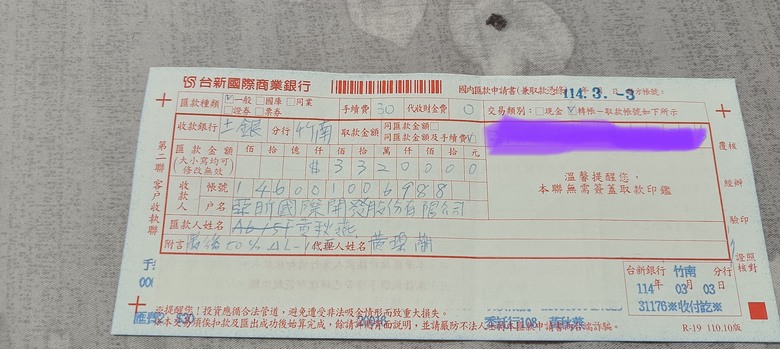 台新國際商業銀行
國內匯款申請書(兼取款憑條)
114.3.-3
匯款種類 ☑一般 □國庫 □同業 □證券 □票券 手續費 30 代收財金費 0 交易類別: □現金 ☑轉帳-取款帳號如下所示
收款銀行 土銀 分行 竹南 取款金額 同匯款金額□ 同匯款金額及手續費☑
匯款金額 (大小寫均可修改無效) 佰 拾 億 仟 佰 拾 萬 仟 佰 拾 元
$ 3 3 2 0 0 0 0
收款人 帳號 146001006988
戶名 國際開發股份有限公司
匯款人姓名 黃秋燕
附言 50% A1-1 代理人姓名 黃
溫馨提醒您,
本聯無需簽蓋取款印鑑
第二聯 客戶收執聯
覆核
經辦
驗印
證照核對
台新銀行 竹南 分行
114 年 03 月 03 日
31176※收付訖※
匯費 $30
委託行108 黃秋燕
※提醒您!投資應循合法管道,避免遭受非法吸金情形而致重大損失。
※本交易須俟扣款及匯出成功後始算完成,餘請詳背面說明,並請嚴防不法人士
R-19 110.10版